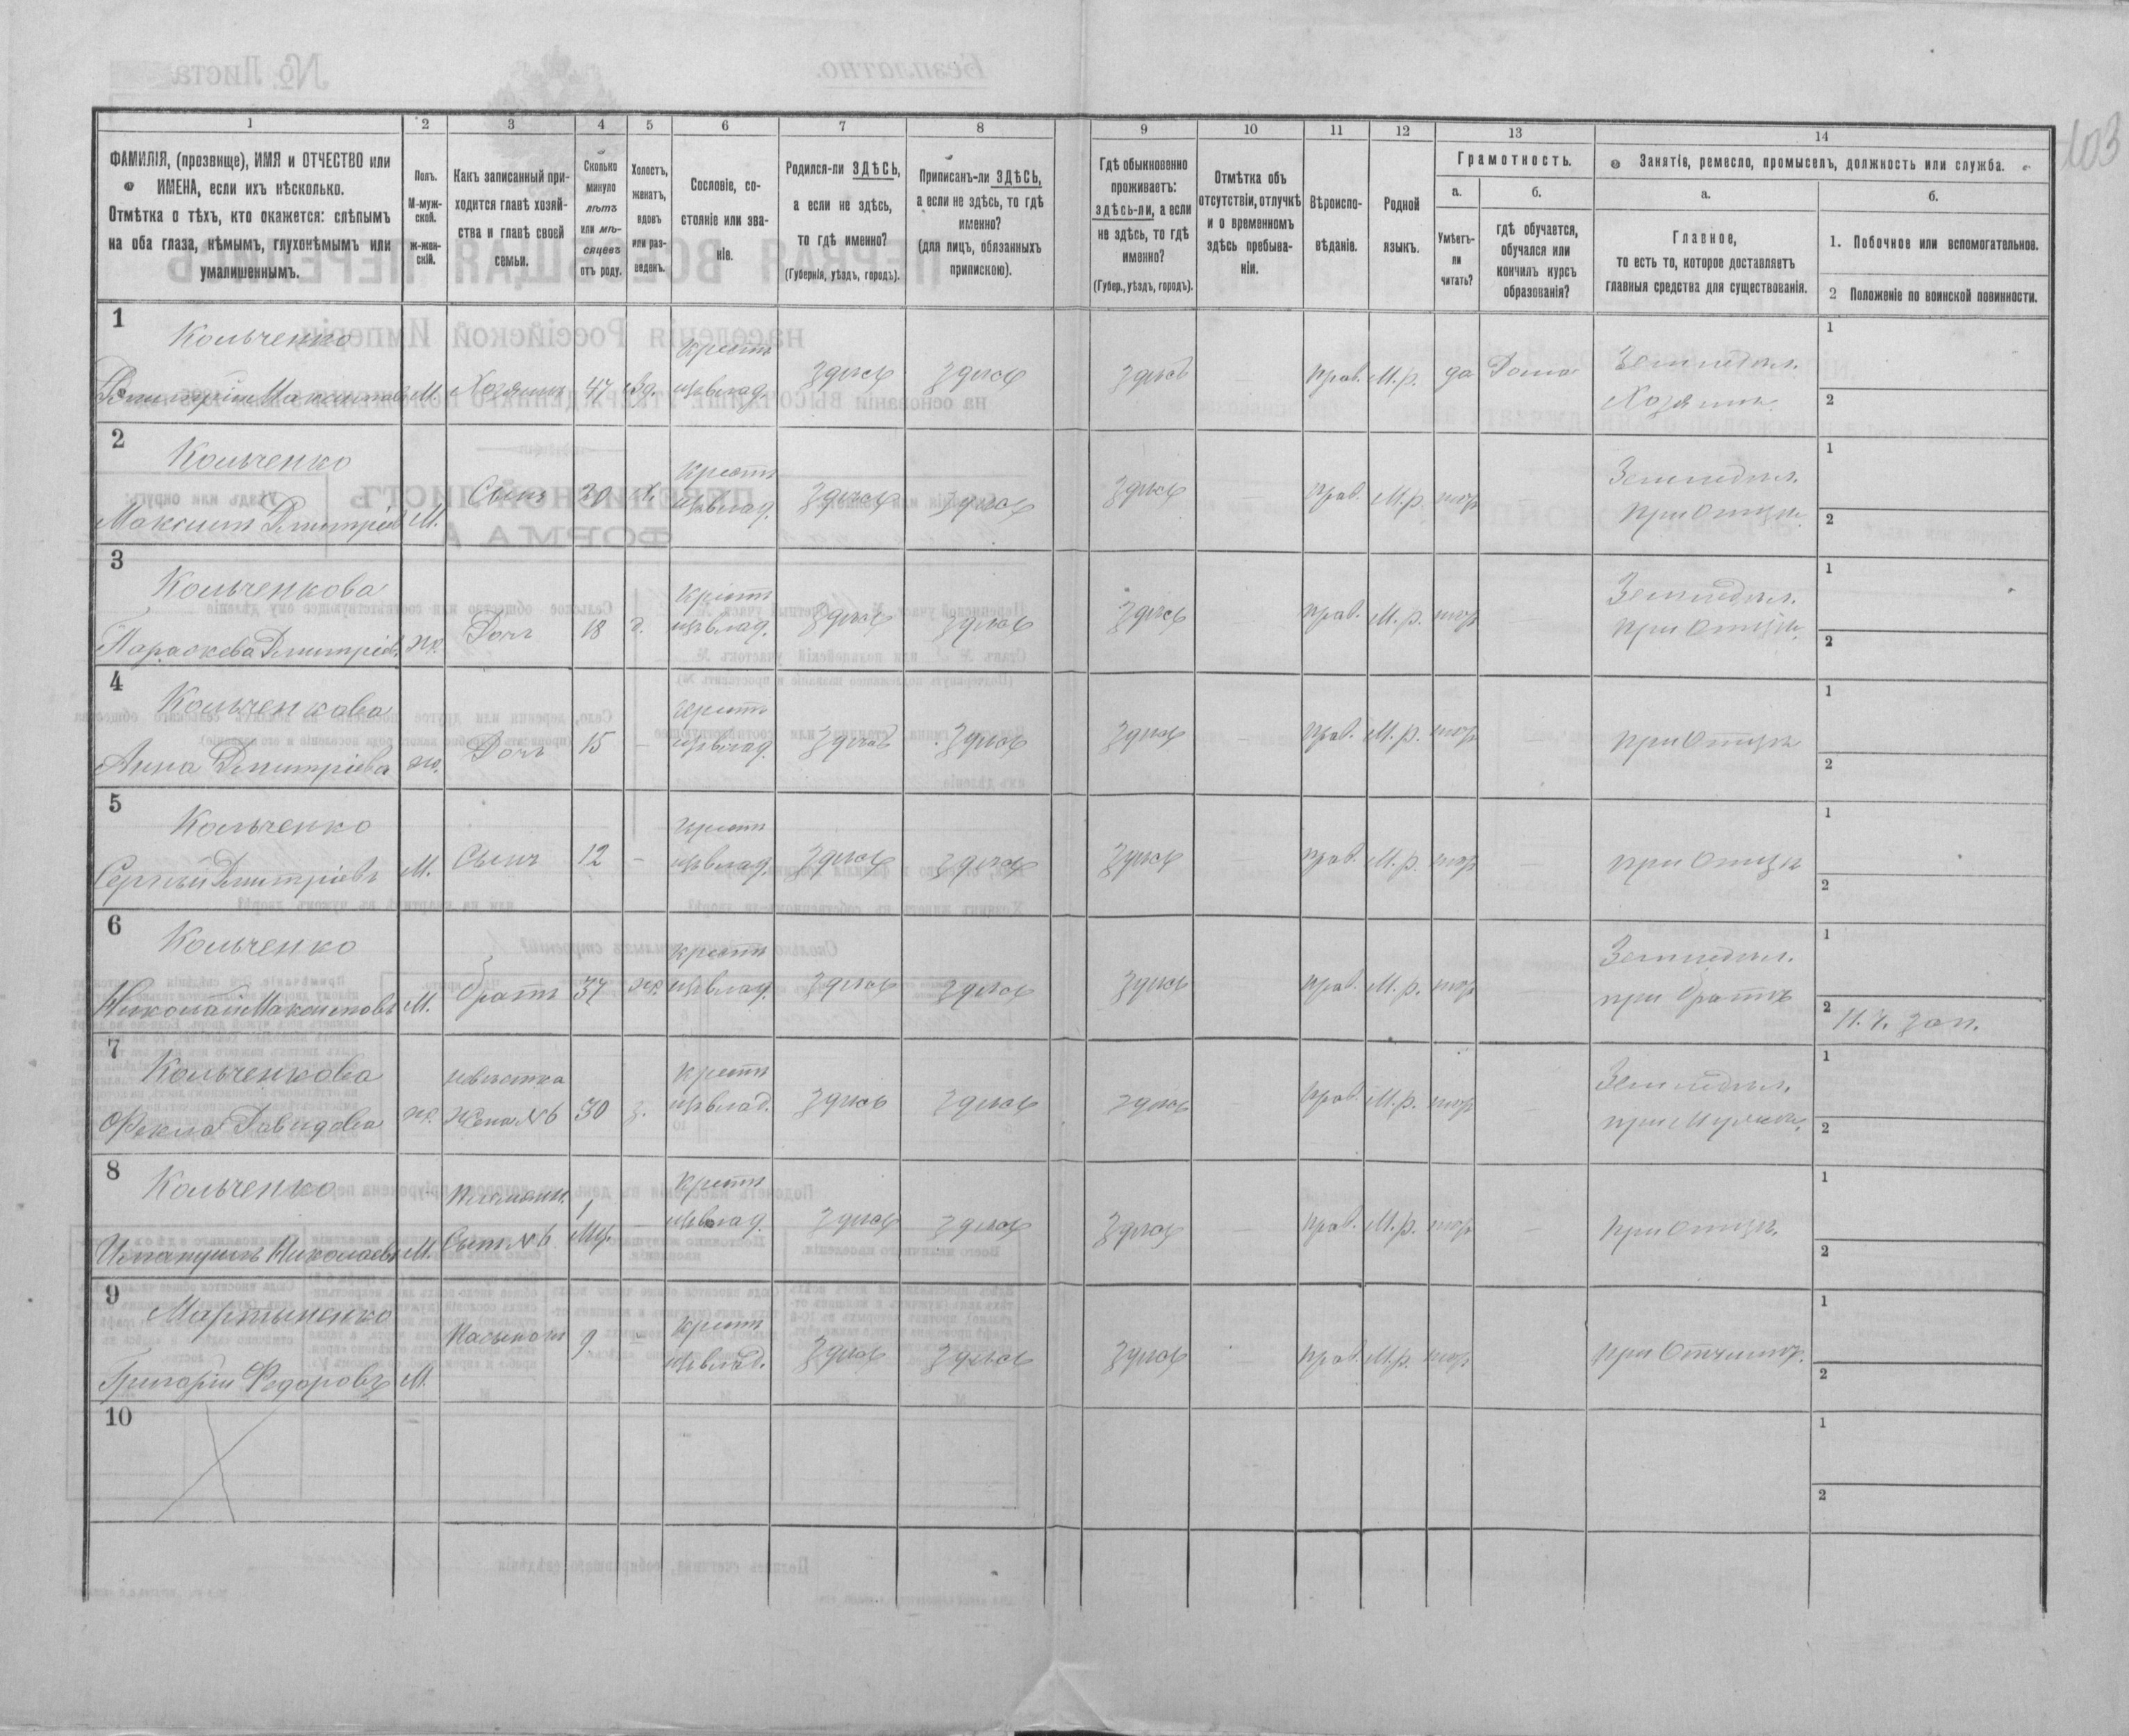 103
1 2 3 4 5 6 7 8 9 10 11 12 13 14
ФАМИЛІЯ, (прозвище), ИМЯ и ОТЧЕСТВО или
ИМЕНА, если ихъ нѣсколько.
Отмѣтка о тѣхъ, кто окажется: слѣпымъ
на оба глаза, нѣмымъ, глухонѣмымъ или
умалишеннымъ.
Полъ.
М-муж-
ской.
ж-жен-
скій.
Какъ записанный при-
ходится главѣ хозяй-
ства и главѣ своей
семьи.
Сколько
минуло
лѣтъ
или мѣ-
сяцевъ
отъ роду.
Холостъ,
женатъ,
вдовъ
или раз-
веденъ.
Сословіе, со-
стояніе или зва-
ніе.
Родился-ли ЗДѢСЬ,
а если не здѣсь,
то гдѣ именно?
(Губернія, уѣздъ, городъ).
Приписанъ-ли ЗДѢСЬ,
а если не здѣсь, то гдѣ
именно?
(для лицъ, обязанныхъ
припискою).
Гдѣ обыкновенно
проживаетъ:
здѣсь-ли, а если
не здѣсь, то гдѣ
именно?
(Губер., уѣздъ, городъ).
Отмѣтка объ
отсутствіи, отлучкѣ
и о временномъ
здѣсь пребыва-
ніи.
Вѣроиспо-
вѣданіе.
Родной
языкъ.
Грамотность.
а.
Умѣетъ-
ли
читать?
б.
гдѣ обучается,
обучался или
кончилъ курсъ
образованія?
Занятіе, ремесло, промыселъ, должность или служба.
а.
Главное,
то есть то, которое доставляетъ
главныя средства для существованія.
б.
1. Побочное или вспомогательное.
2 Положеніе по воинской повинности.
1
Кольченко крест. Земледѣл. 1
Дмитрій Максимовъ М. Хозяинъ 47 вд. здѣсь здѣсь здѣсь — прав. М.р. да Дома Хозяинъ 2
2
Кольченко крест. Земледѣл. 1
Максимъ Дмитріевъ М. Сынъ 20 х. здѣсь здѣсь здѣсь прав. М.р. — при Отцѣ. 2
3
Кольченкова крест. Земледѣл. 1
Параскева Дмитріев. ж. Дочь 18 здѣсь здѣсь здѣсь прав. М.р. — при Отцѣ. 2
4
Кольченкова крест. 1
Анна Дмитріева ж. Дочь 15 — здѣсь здѣсь здѣсь — прав. М.р. — при Отцѣ 2
5
Кольченко крест. 1
Сергѣй Дмитріевъ М. Сынъ 12 — здѣсь здѣсь здѣсь прав. М.р. — при Отцѣ 2
6
Кольченко крест. Земледѣл. 1
Николай Максимовъ М. братъ 37 ж. здѣсь здѣсь здѣсь прав. М.р. — при братѣ 2
7
Кольченкова невѣстка крест. Земледѣл. 1
Фекла Давидова ж. Жена №6 30 з. здѣсь здѣсь здѣсь — прав. М.р. — при Мужѣ. 2
8
Кольченко племянн. 1 крест. 1
Николаевъ М. Сынъ №6 мц. — здѣсь здѣсь здѣсь — прав. М.р. — при Отцѣ. 2
9
Мартыненко крест. 1
Григорій Федоровъ М. Пасынокъ 9 — здѣсь здѣсь здѣсь — прав. М.р. при Отчимѣ. 2
10
1
2